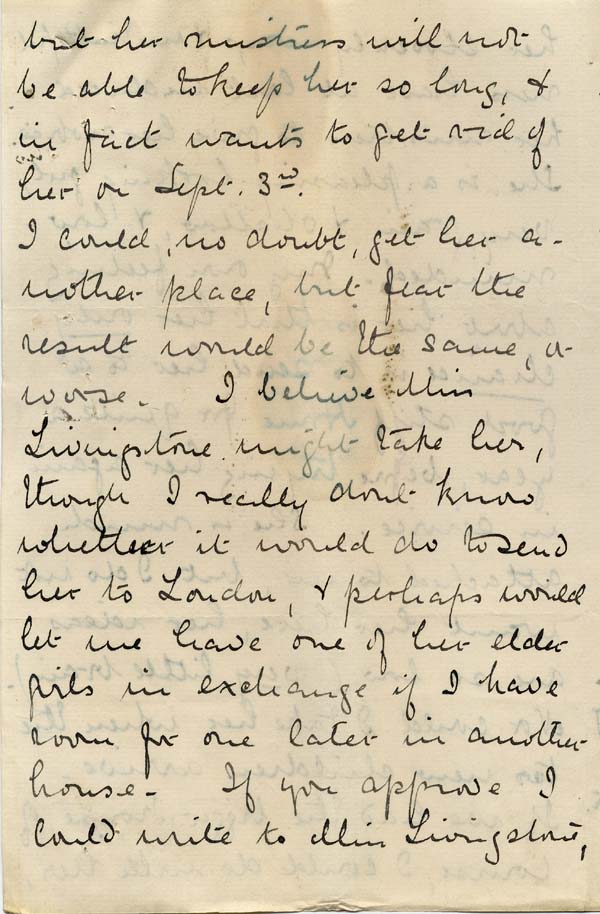 but her mistress will not
be able to keep her so long, &
in fact wants to get rid of
her on Sept. 3rd.
I could, no doubt, get her a-
nother place, but fear the
result would be the same, or
worse. I believe Miss
Livingstone might take her,
though I really don't know
whether it would do to send
her to London, & perhaps would
let me have one of her elder
girls in exchange if I have
room for one later in another
house. If you approve I
could write to Miss Livingstone,